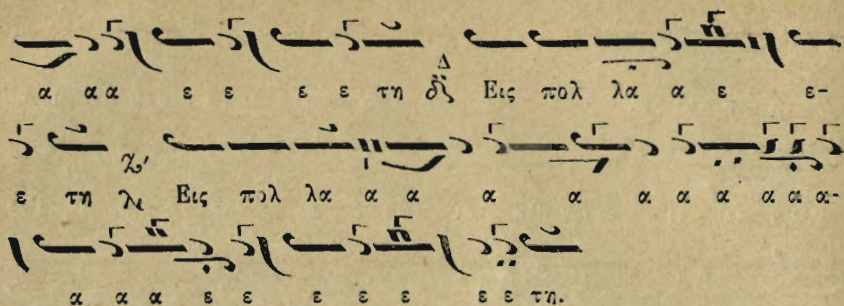 α α α ε ε ε ε τη Δ δι Εις πολ λα α ε ε-
ε τη ζ' λι Εις πολ λα α α α α α α α α α α-
α α α ε ε ε ε ε ε ε τη.